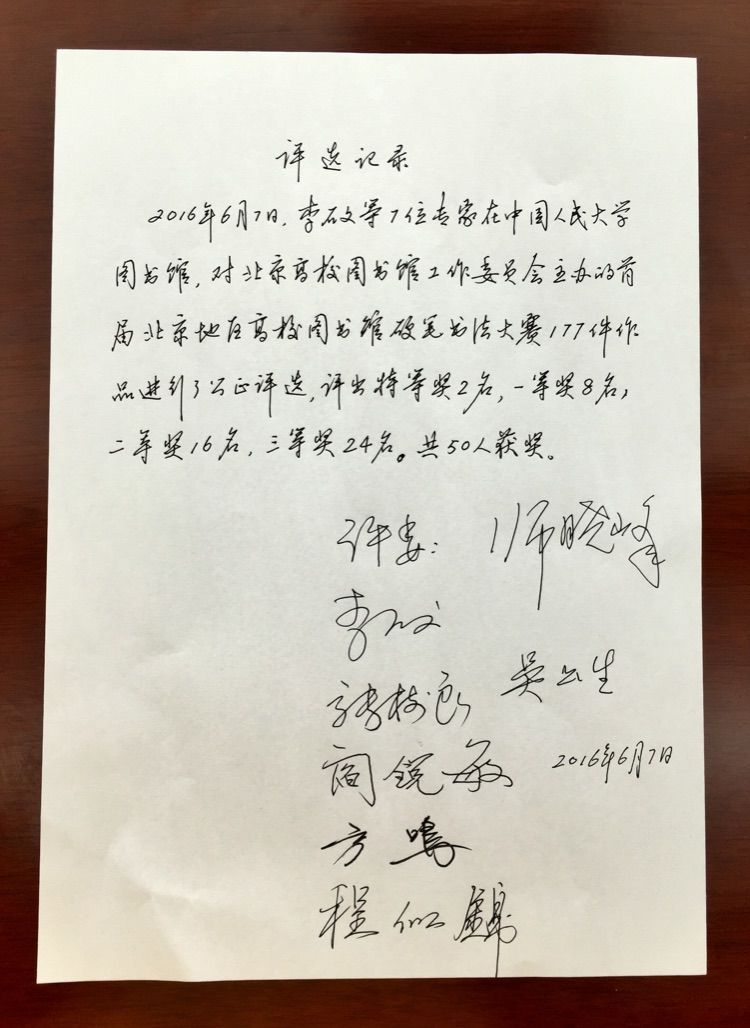 评选记录
2016年6月7日,李砍等7位专家在中国人民大学
图书馆,对北京高校图书馆工作委员会主办的首
届北京地区高校图书馆硬笔书法大赛177件作
品进行了公正评选,评出特等奖2名,一等奖8名,
二等奖16名,三等奖24名。共50人获奖。
评委: 师晓峰
李
吴公生
阎锐敏
2016年6月7日
方鸣
程似锦